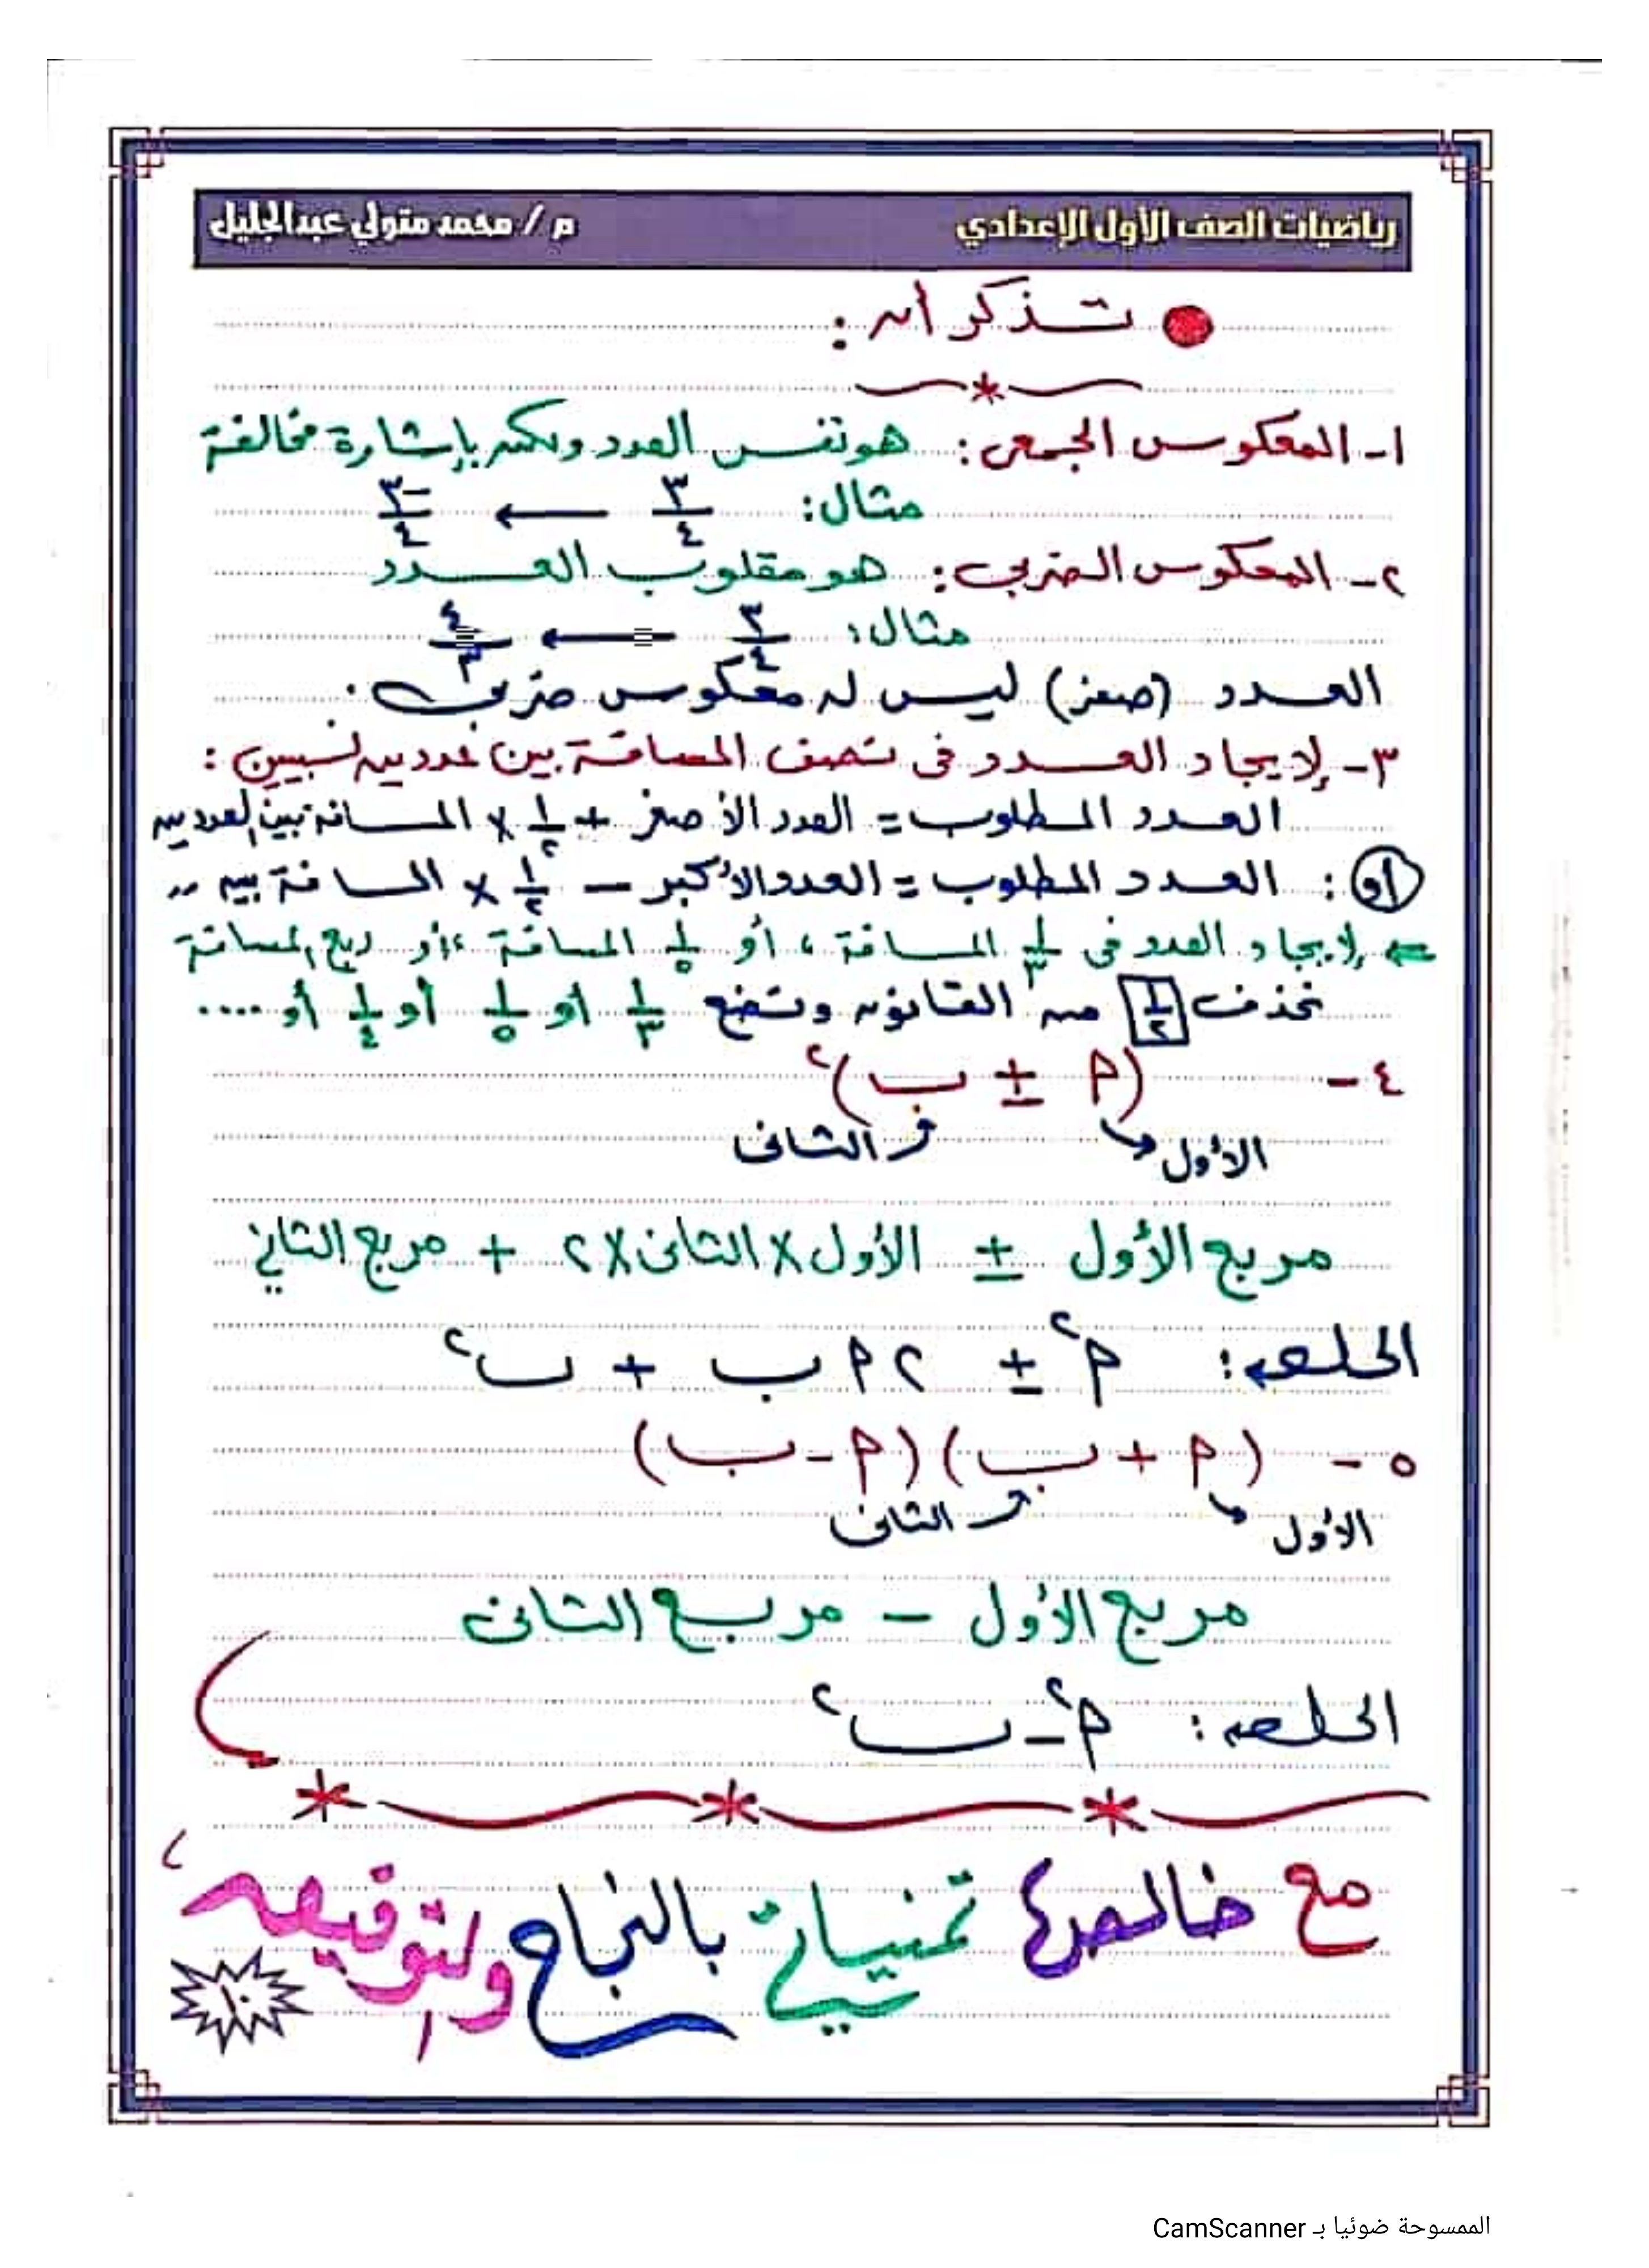 رياضيات الصف الأول الإعدادي م / محمد متولي عبدالجليل
تذكر أن :
١- المعكوس الجمعى : هو نفس العدد ولكن بإشارة مخالفة
مثال : ٣/٤ ← -٣/٤
٢- المعكوس الضربى : هو مقلوب العدد
مثال : ٣/٤ ← ٤/٣
العدد (صفر) ليس له معكوس ضربى .
٣- لإيجاد العدد فى نصف المسافة بين عددين نسبيين :
العدد المطلوب = العدد الأصغر + ١/٢ × المسافة بين العددين
أو : العدد المطلوب = العدد الأكبر - ١/٢ × المسافة بين ,,
⇐ لإيجاد العدد فى ١/٣ المسافة ، أو ١/٥ المسافة ، أو ربع المسافة
نحذف ١/٢ من القانون ونضع ١/٣ أو ١/٥ أو ١/٤ أو ....
٤- (أ ± ب)٢
الأول الثانى
مربع الأول ± الأول × الثانى × ٢ + مربع الثاني
الحل هو : أ٢ ± ٢ أ ب + ب٢
٥- (أ + ب) (أ - ب)
الأول الثانى
مربع الأول - مربع الثانى
الحل هو : أ٢ - ب٢
مع خالص تمنياتي بالنجاح والتوفيق ،
١٠
الممسوحة ضوئيا بـ CamScanner